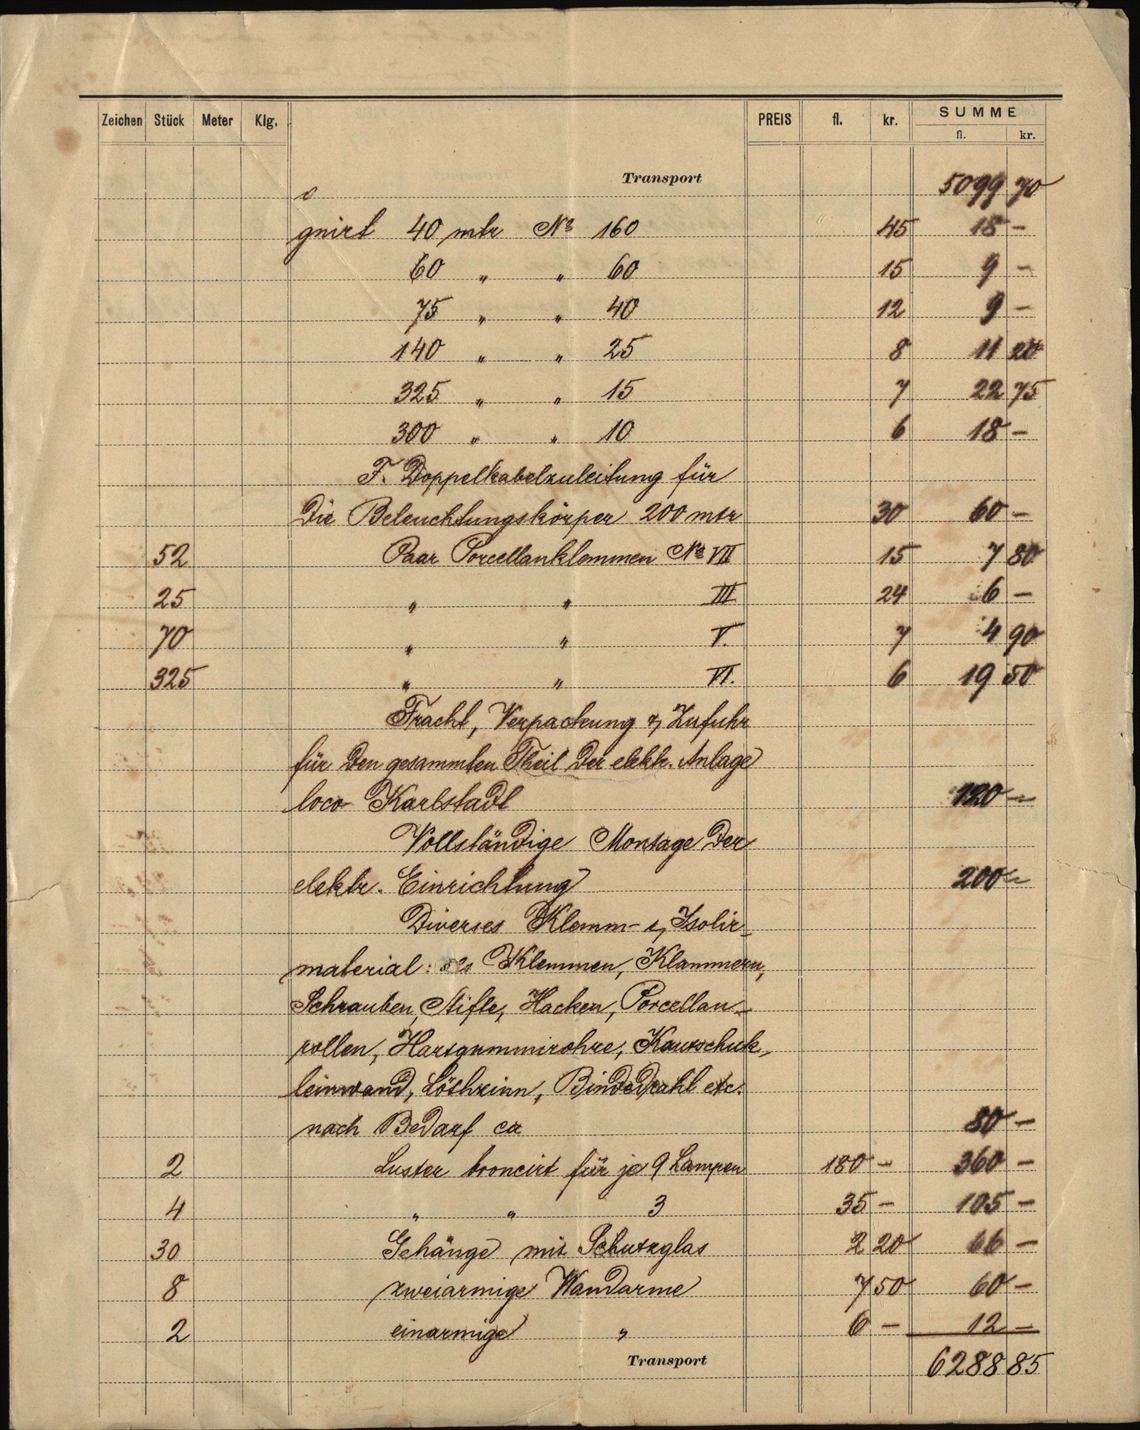 Zeichen Stück Meter Klg. PREIS fl. kr. SUMME fl. kr.
Transport 5099 70
gnirt 40 mtr No 160 45 18 –
60 " " 60 15 9 –
75 " " 40 12 9 –
140 " " 25 8 11 20
325 " " 15 7 22 75
300 " " 10 6 18 –
F. Doppelkabelzuleitung für
Die Beleuchtungskörper 200 mtr 30 60 –
52 Paar Porcellanklemmen No VII 15 7 80
25 " " III 24 6 –
70 " " V. 7 4 90
325 " " VI. 6 19 50
Fracht, Verpackung & Zufuhr
für den gesammten Theil der elektr. Anlage
loco Karlstadt 120 –
Vollständige Montage der
elektr. Einrichtung 200 –
Diverses Klemm- & Isolir-
material: als Klemmen, Klammern,
Schrauben, Stifte, Hacken, Porcellan-
rollen, Hartgummirohre, Kautschuk-
leinwand, Löthzinn, Bindedraht etc.
nach Bedarf ca 80 –
2 Luster broncirt für je 9 Lampen 180 – 360 –
4 " " 3 35 – 105 –
30 Gehänge mit Schutzglas 2 20 66 –
8 zweiarmige Wandarme 7 50 60 –
2 einarmige " 6 – 12 –
Transport 6288 85